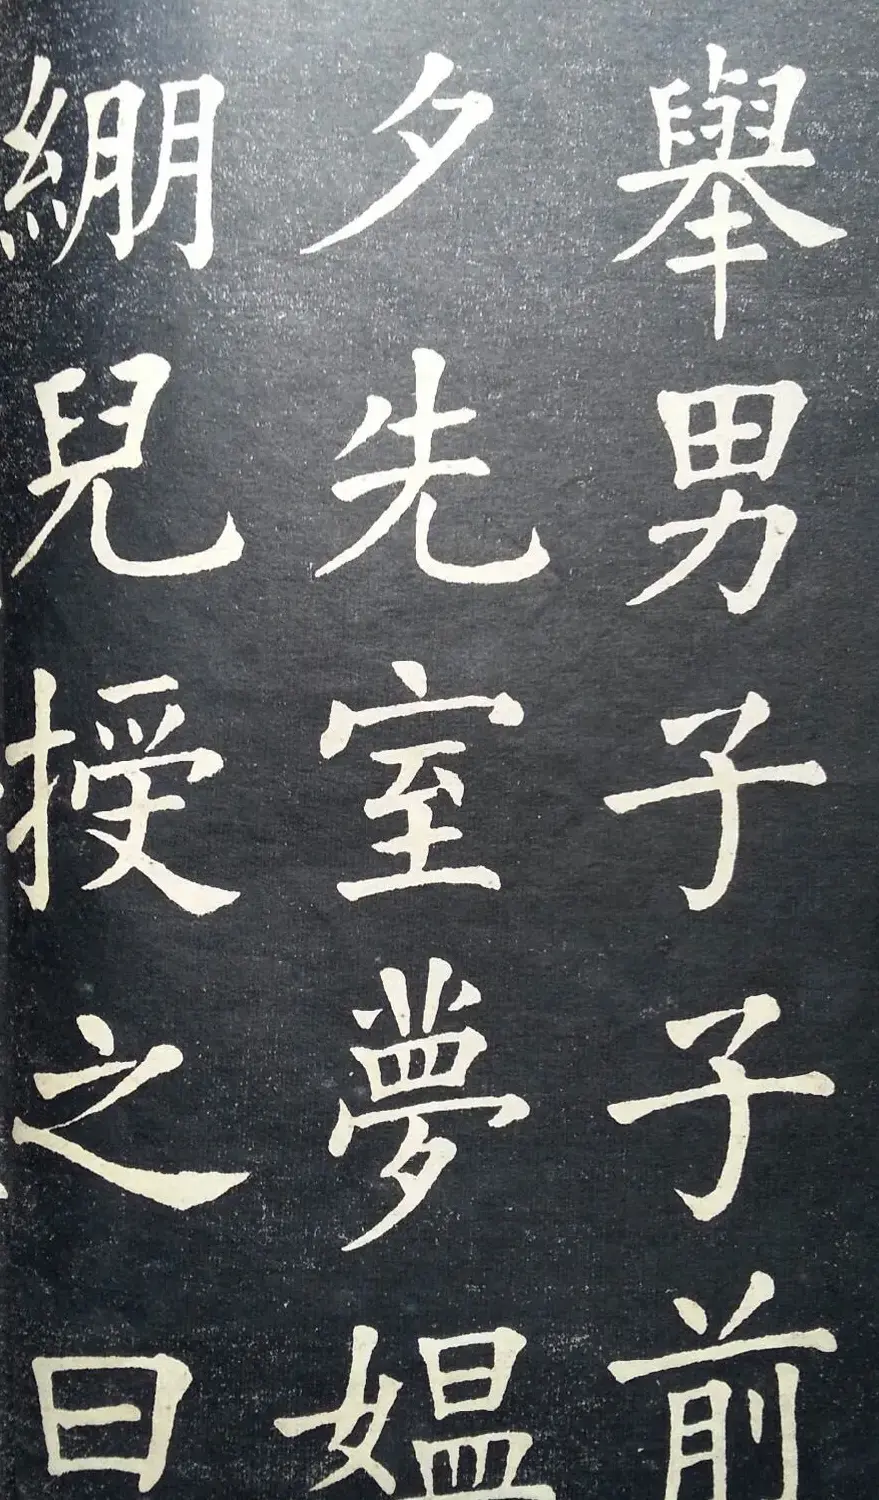 舉男子子前
夕先室夢媼
繃兒授之曰